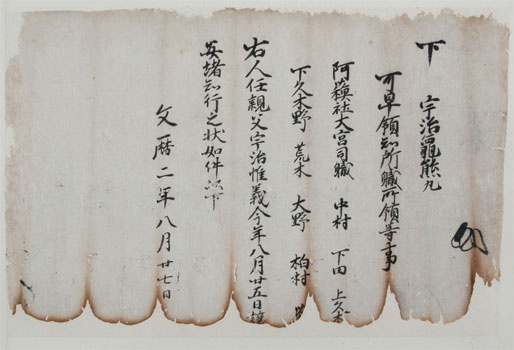 下　宇治亀熊丸
可早領知所職所領等事
阿蘇社大宮司職　中村　下田　上久木
下久木野　荒木　大野　柏村
右人任親父宇治惟義今年八月廿五日譲
安堵知行之状如件以下
文暦二年八月廿七日